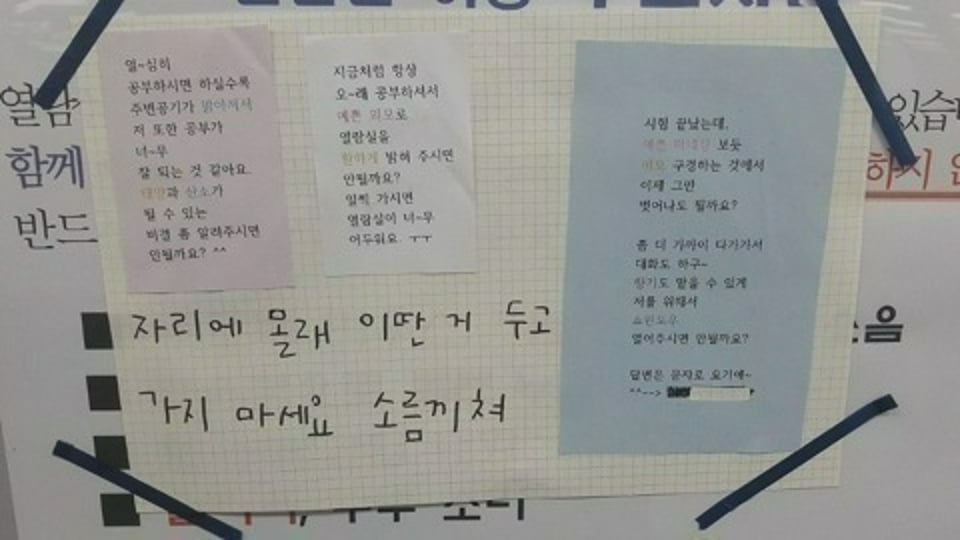 열~심히
공부하시면 하실수록
주변공기가 맑아져서
저 또한 공부가
너~무
잘 되는 것 같아요.
태양과 산소가
될 수 있는
비결 좀 알려주시면
안될까요? ^^
지금처럼 항상
오~래 공부하셔서
예쁜 외모로
열람실을
환하게 밝혀 주시면
안될까요?
일찍 가시면
열람실이 너~무
어두워요. ㅜㅜ
시험 끝났는데,
예쁜 마네킹 보듯
외모 구경하는 것에서
이제 그만
벗어나도 될까요?
좀 더 가까이 다가가서
대화도 하구~
향기도 맡을 수 있게
저를 위해서
쇼윈도우
열어주시면 안될까요?
답변은 문자로 요기에~
^^-->
자리에 몰래 이딴 거 두고
가지 마세요 소름끼쳐
열람
함께
반드
있습
하지
소리